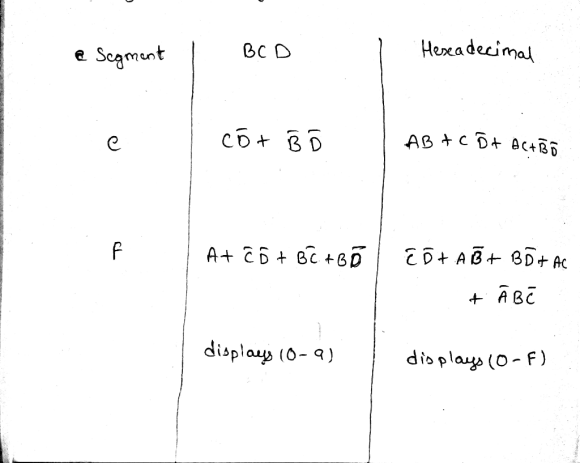 e Segment BCD Hexadecimal
e CD̅ + B̅ D̅ AB + C D̅ + AC + B̅D̅
f A + C̅ D̅ + BC̅ + BD̅ C̅ D̅ + AB̅ + BD̅ + AC
+ A̅ B C̅
displays (0-9) displays (0-F)